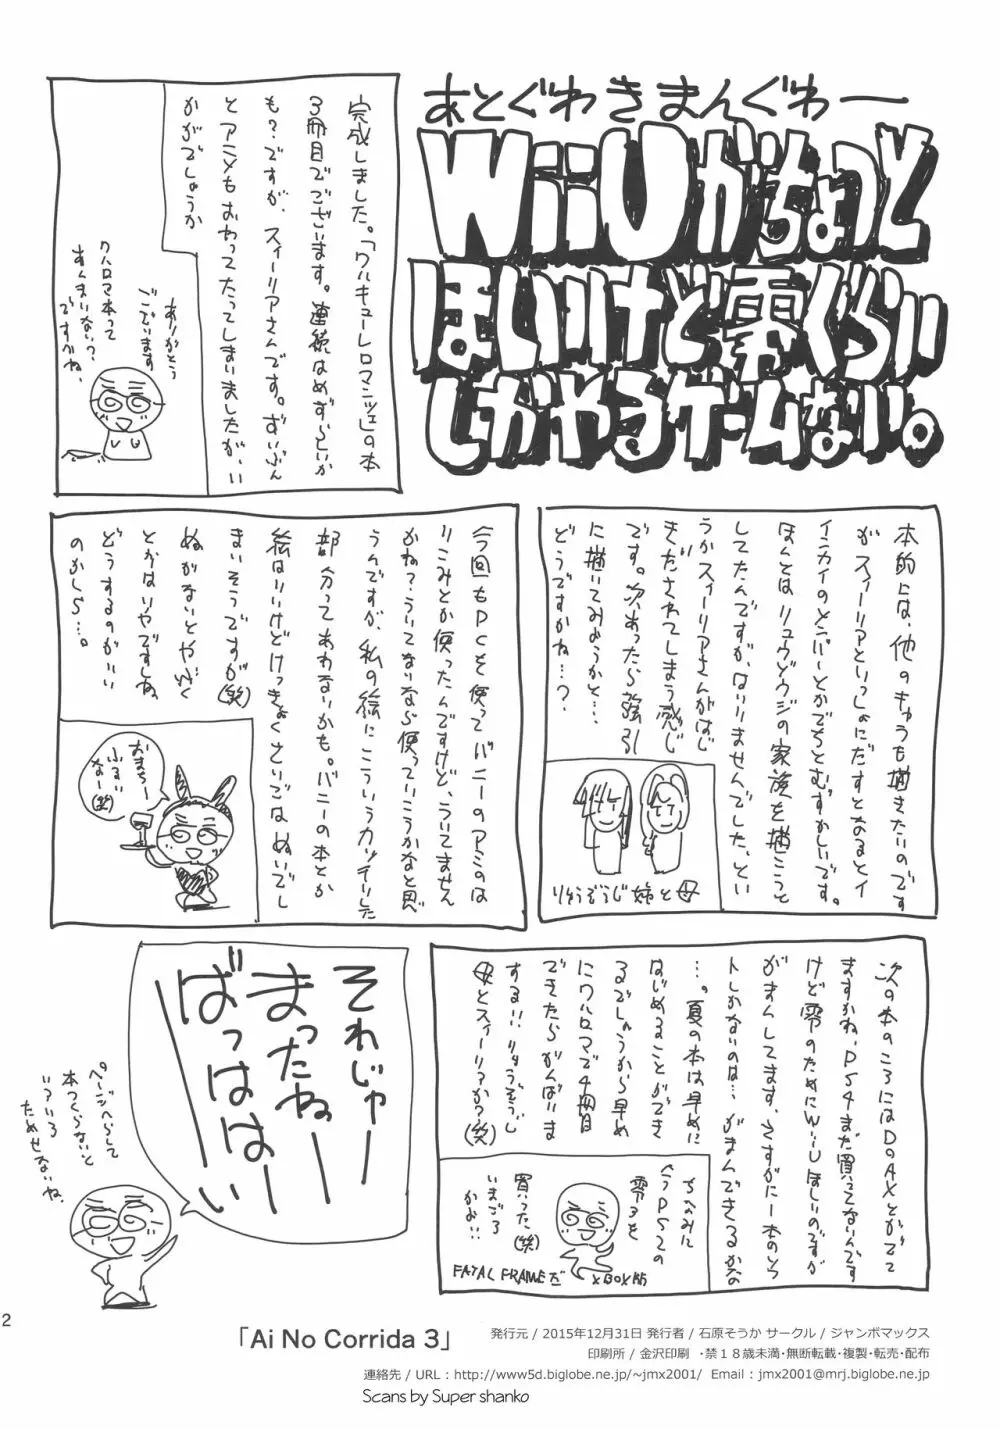 あとぐわきまんぐわー
WiiUがちょっと
ほしいけど零ぐらい
しかやるゲームない。
完成しました。「ワルキューレロマンツェ」の本
3冊目でございます。連続はめずらしいか
も?ですが、スィーリアさんです。ずいぶん
とアニメもおわってたってしまいましたが、い
かがでしょうか
ありがとう
ございます
ワルロマ本って
すんませんない?
ですがね、
本的上は、他のキャラも描きたいのです
がスィーリアといっしょにだすとなるとイ
イカイのとバーとかでちとむずかしいです。
ほんとはリュウゾウジの家族を描こうと
してたんですが、はいりませんでした、とい
うかスィーリアさんがはじ
きだされてしまう感じ
です。次あったら強引
に描いてみようかと…
どうですかね…?
りゅうぞうじ姉と母
今回もPCを使ってバニーのアミのは
りこみとか使ったんですけど、ういてません
かね?ういてないなら使っていこうかなと思
うんですが、私の絵にこういうカッチリした
部分ってあわないかも。バニーの本とか
絵はいいけどけっきょくさいごはぬいでし
まいそうですが(笑)
ぬがないとやいくく
とかはいやですしね
どうするのがいい
のかしら…。
おまえー
ふるい
なー(笑)
次の本のころにはDOAXとかでて
ますかね、PS4まだ買ってないんです
けど零のためにWiiUほしいのですが
がまんしてます、さすがに一本のソフ
トしかないのは…がまんできるかな
…。夏の本は早めに
はじめることができ
るでしょうから早め
にワルロマで4冊目
できたらがんばりま
する!!りゅうぞうじ
母とスィーリアか?(笑)
ちなみに
今PS2の
零3を
買った、(笑)
いまごろ
かよ!!
FATAL FRAMEだ XBOX版
それじゃー
まったねー
ばっははーい
ページへらして
本つくらないと
いろいろ
ためせないね、
2
「Ai No Corrida 3」
発行元 / 2015年12月31日 発行者 / 石原そうか サークル / ジャンボマックス
印刷所 / 金沢印刷 ・禁18歳未満・無断転載・複製・転売・配布
連絡先 / URL : http://www5d.biglobe.ne.jp/~jmx2001/ Email : jmx2001@mrj.biglobe.ne.jp
Scans by Super shanko